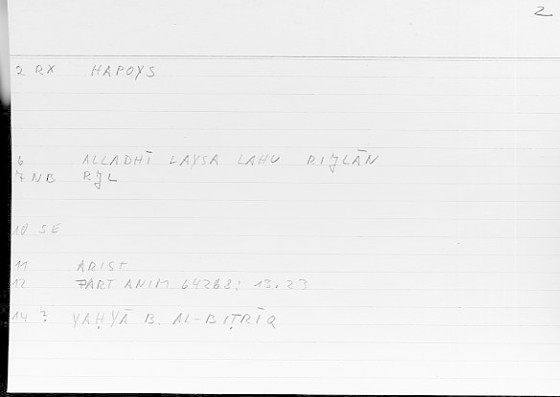 2
2 RX HAPOYS
6 ALLADHĪ LAYSA LAHU RIJLĀN
7 NB RJL
10 SE
11 ARIST
12 PART ANIM 642b8; 13.23
14 ? YAḤYĀ B. AL-BIṬRĪQ